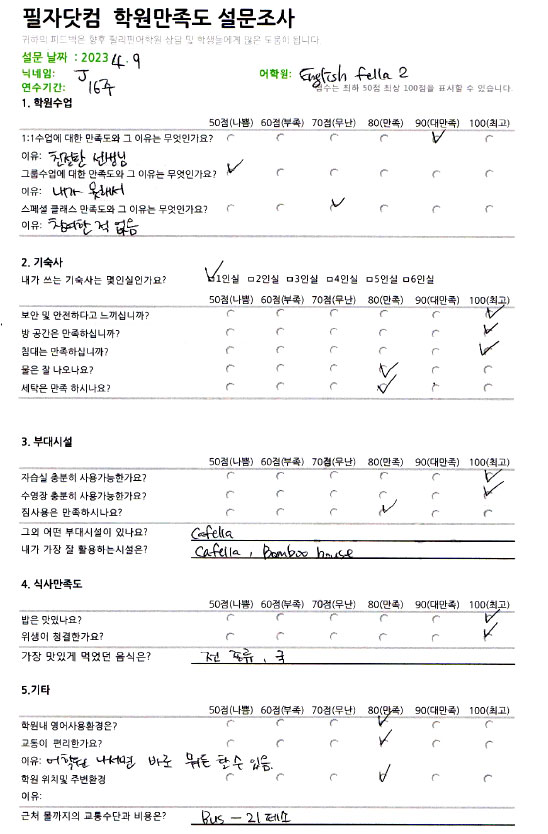 필자닷컴 학원만족도 설문조사
귀하의 피드백은 향후 필리핀어학원 상담 및 학생들에게 많은 도움이 됩니다.
설문 날짜 : 2023 4. 9
닉네임: J 어학원: English fella 2
연수기간: 16주 점수는 최하 50점 최상 100점을 표시할 수 있습니다.
1. 학원수업
50점(나쁨) 60점(부족) 70점(무난) 80(만족) 90(대만족) 100(최고)
1:1수업에 대한 만족도와 그 이유는 무엇인가요?
이유: 친절한 선생님
그룹수업에 대한 만족도와 그 이유는 무엇인가요?
이유: 내가 못해서
스페셜 클래스 만족도와 그 이유는 무엇인가요?
이유: 참여한 적 없음
2. 기숙사
내가 쓰는 기숙사는 몇인실인가요? ☑1인실 □2인실 □3인실 □4인실 □5인실 □6인실
50점(나쁨) 60점(부족) 70점(무난) 80(만족) 90(대만족) 100(최고)
보안 및 안전하다고 느끼십니까?
방 공간은 만족하십니까?
침대는 만족하십니까?
물은 잘 나오나요?
세탁은 만족 하시나요?
3. 부대시설
50점(나쁨) 60점(부족) 70점(무난) 80(만족) 90(대만족) 100(최고)
자습실 충분히 사용가능한가요?
수영장 충분히 사용가능한가요?
짐사용은 만족하시나요?
그외 어떤 부대시설이 있나요? Cafella
내가 가장 잘 활용하는시설은? Cafella, Bamboo house
4. 식사만족도
50점(나쁨) 60점(부족) 70점(무난) 80(만족) 90(대만족) 100(최고)
밥은 맛있나요?
위생이 청결한가요?
가장 맛있게 먹었던 음식은? 전 종류, 국
5.기타
50점(나쁨) 60점(부족) 70점(무난) 80(만족) 90(대만족) 100(최고)
학원내 영어사용환경은?
교통이 편리한가요?
이유: 어학원 나서면 바로 뭐든 탈수 있음.
학원 위치및 주변환경
이유:
근처 몰까지의 교통수단과 비용은? Bus - 21 페소